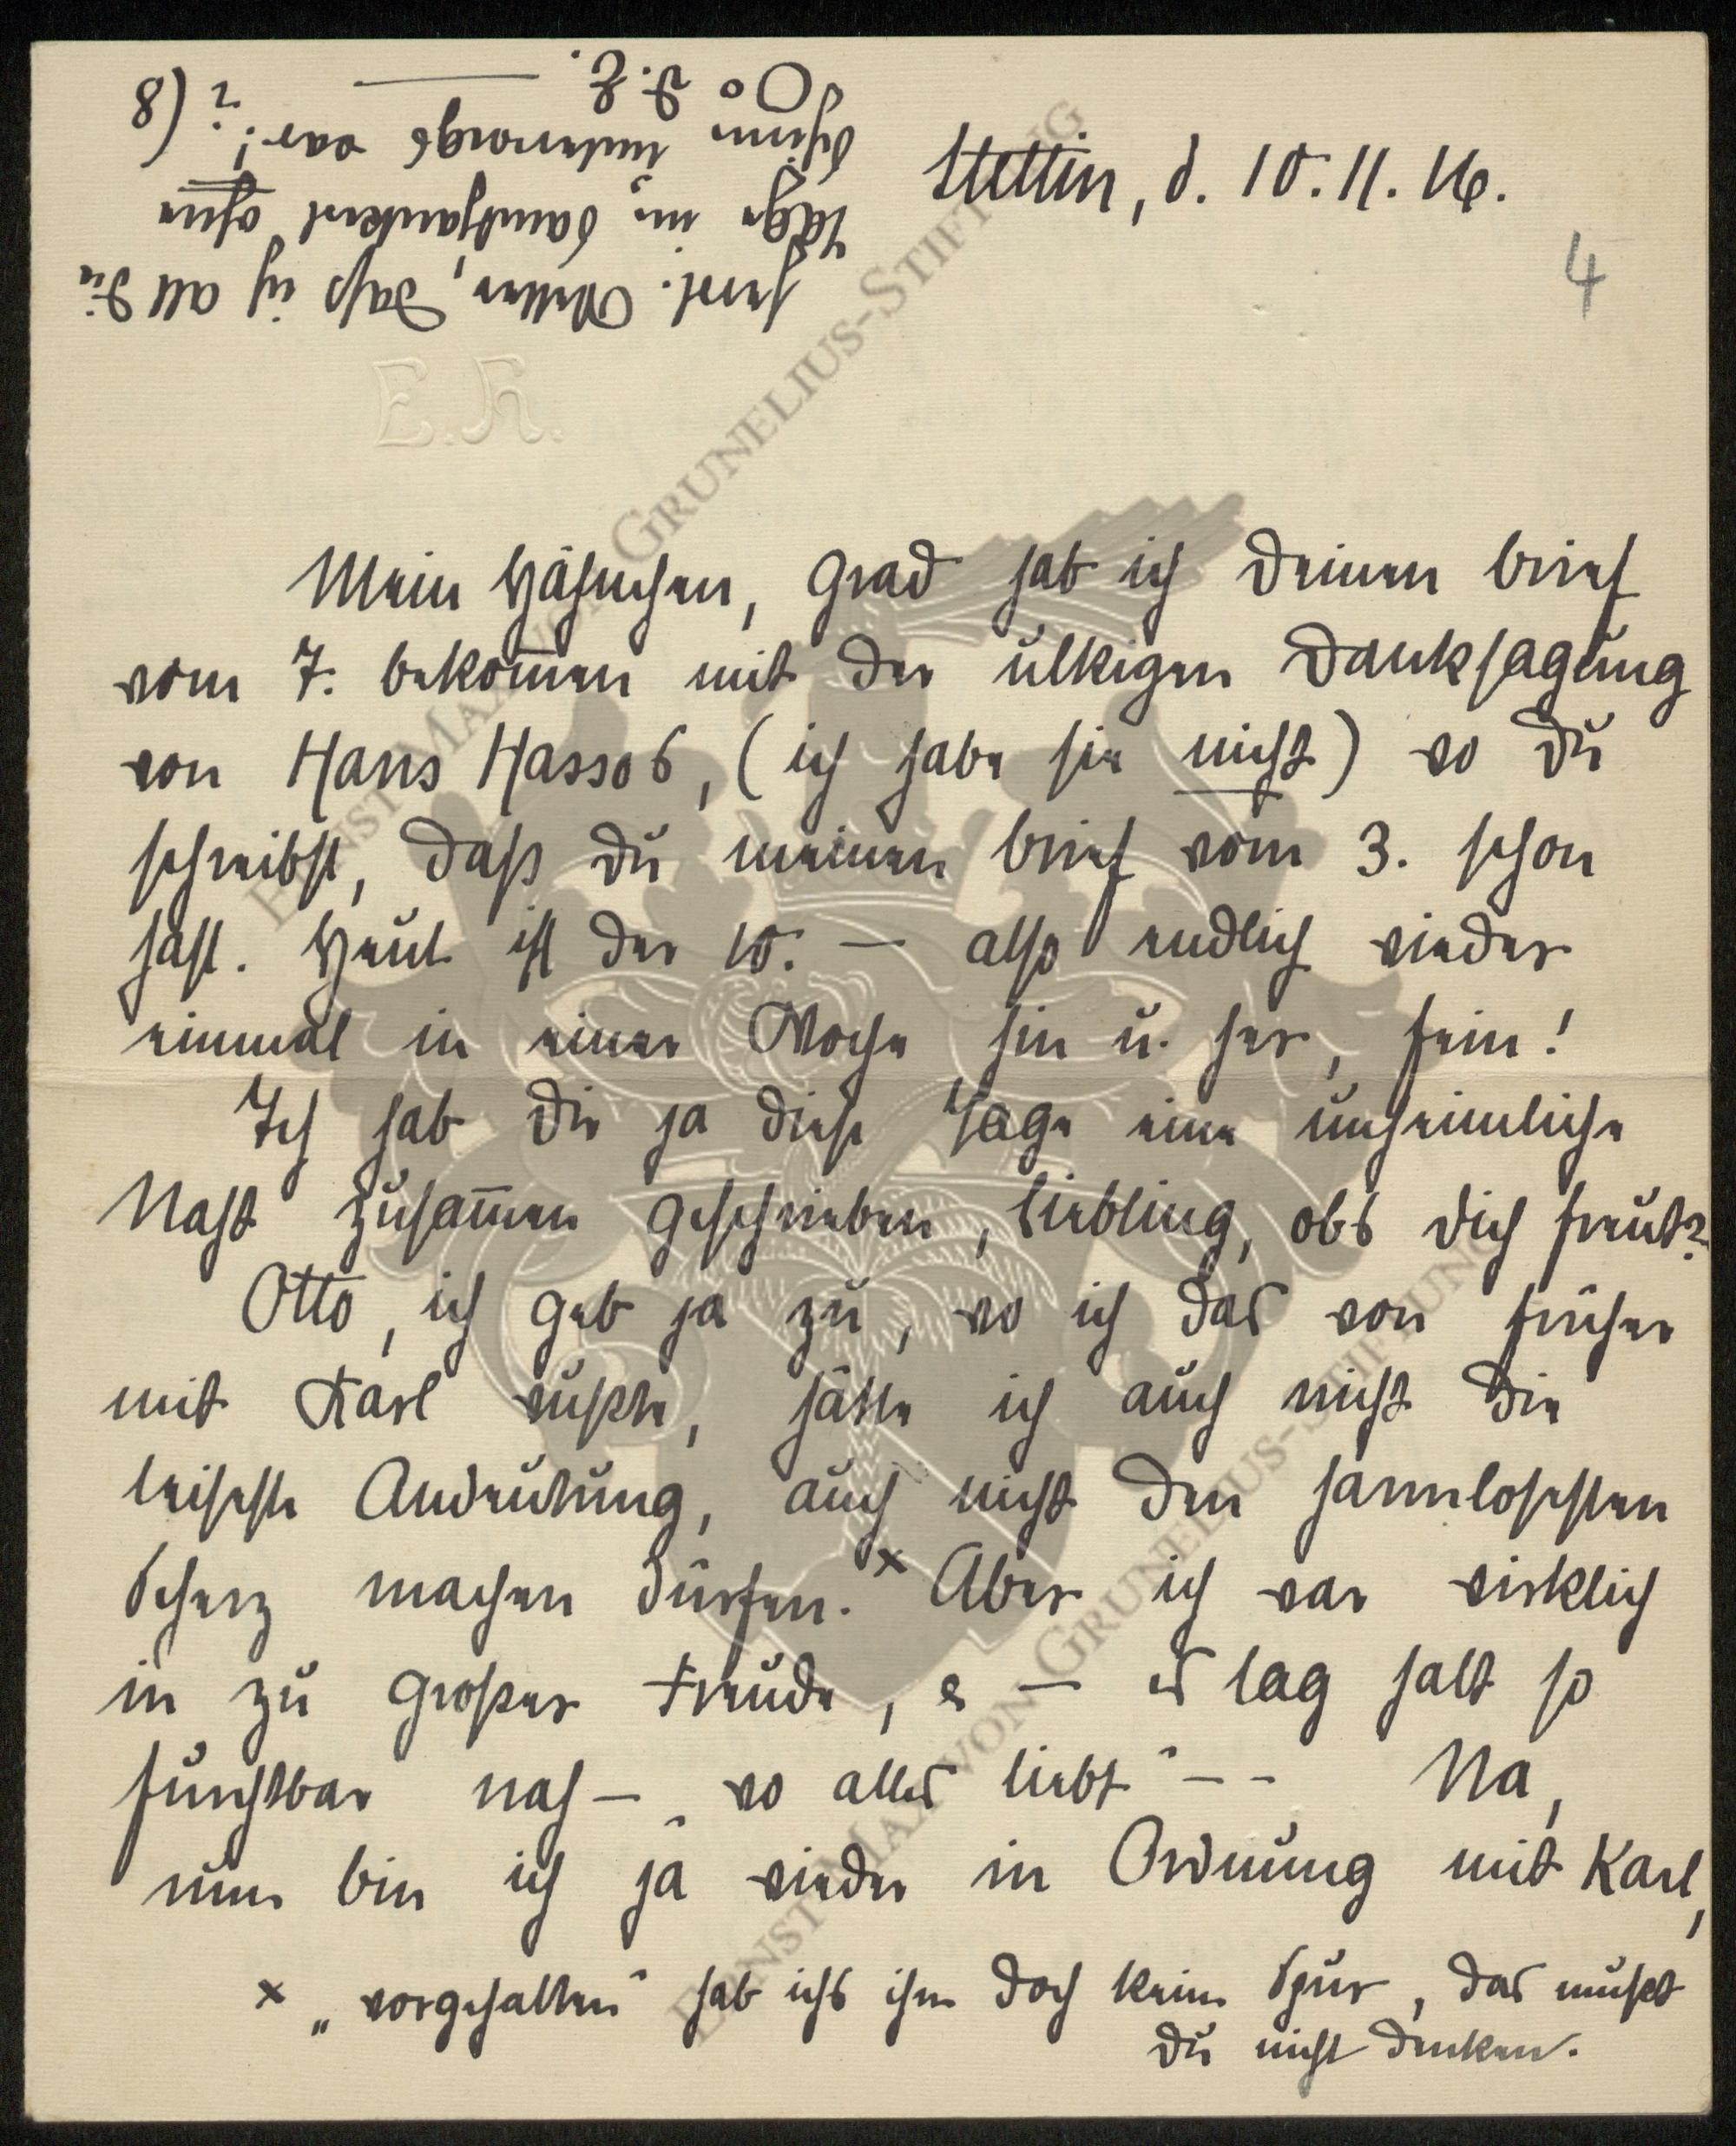 Stettin, d. 10.11.16.
4
E.K.
Mein Hähnchen, grad hab ich deinen Brief
vom 7. bekom̄en mit der ulkigen Danksagung
von Hans Hassos, (ich habe sie nicht) wo du
schreibst, daß du meinen Brief vom 3. schon
hast. Heut ist der 10. — also endlich wieder
einmal in einer Woche hin u. her, fein!
Ich hab dir ja diese Tage eine unheimliche
Macht zusam̄en geschrieben, Liebling, obs dich freut?
Otto, ich geb ja zu, wo ich das von früher
mit Karl wußte, hätte ich auch nicht die
leiseste Andeutung, auch nicht den harmlosesten
Scherz machen dürfen. x Aber ich war wirklich
in zu großer Freude, e — es lag halt so
furchtbar nah — „wo alles liebt“ — —   Na,
nun bin ich ja wieder in Ordnung mit Karl,
x „vorgehalten“ hab ichs ihm doch keine Spur, das mußt
du nicht denken.
herrl. Wetter, daß ich all die
Tage im Samtjankerl ohne
Schirm unterwegs war! ? (8
D. E. —
ERNST MAX VON GRUNELIUS-STIFTUNG
ERNST MAX VON GRUNELIUS-STIFTUNG